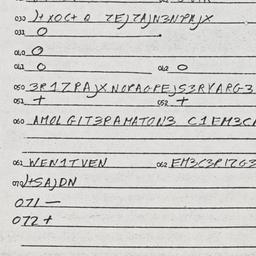 030 J+XOC+Q 7EJ7AJN3NPAJX
031 O
040 O
041 O 042 O
050 3R17PAJXNOPAGPEJS3RYARG3
051 + 052 +
060 AMOLGIT3PAMATON3 C1EM3CA
061 WEN1TVEN 062 EM3C3P17G3
070 J+SAJDN
071 —
072 +